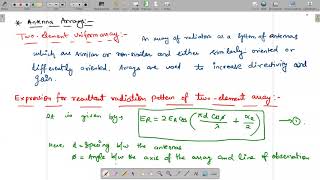 * Antenna Arrays:-
Two-element Uniform array:- An array of radiator is a system of antennas
which are similar or non-similar and either similarly oriented or
differently oriented. Arrays are used to increase directivity and
gain.
Expression for resultant radiation pattern of two-element array:-
It is given by:- E_R = 2 E_0 cos (πd cosϕ/λ + α/2) → ①
Here d = Spacing b/w the antennas
ϕ = Angle b/w the axis of the array and line of observation